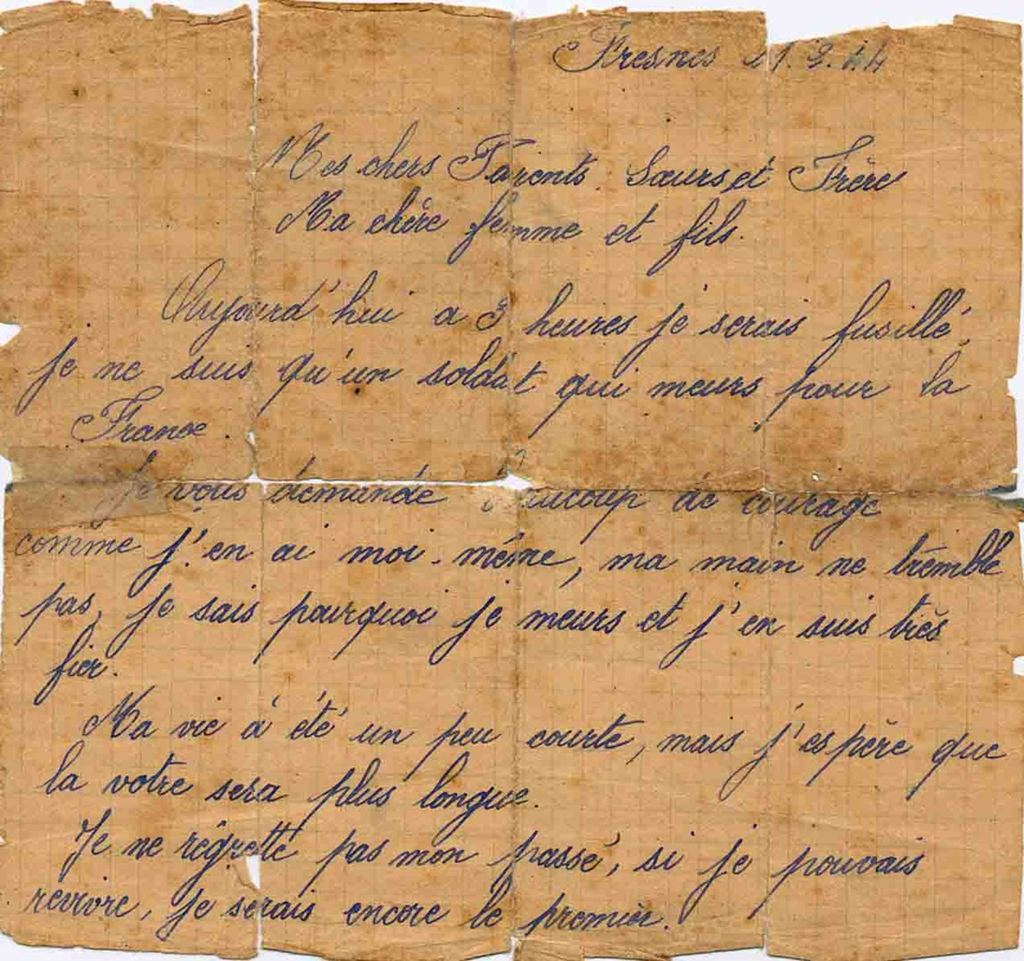 Fresnes 21.2.44
Mes chers Parents. Sœurs et Frère
Ma chère femme et fils.
Aujourd'hui a 3 heures je serais fusillé,
je ne suis qu'un soldat qui meurs pour la
France.
Je vous demande beaucoup de courage
comme j'en ai moi-même, ma main ne tremble
pas, je sais pourquoi je meurs et j'en suis très
fier.
Ma vie à été un peu courte, mais j'espère que
la votre sera plus longue.
Je ne régretté pas mon passé, si je pouvais
revivre, je serais encore le premier.